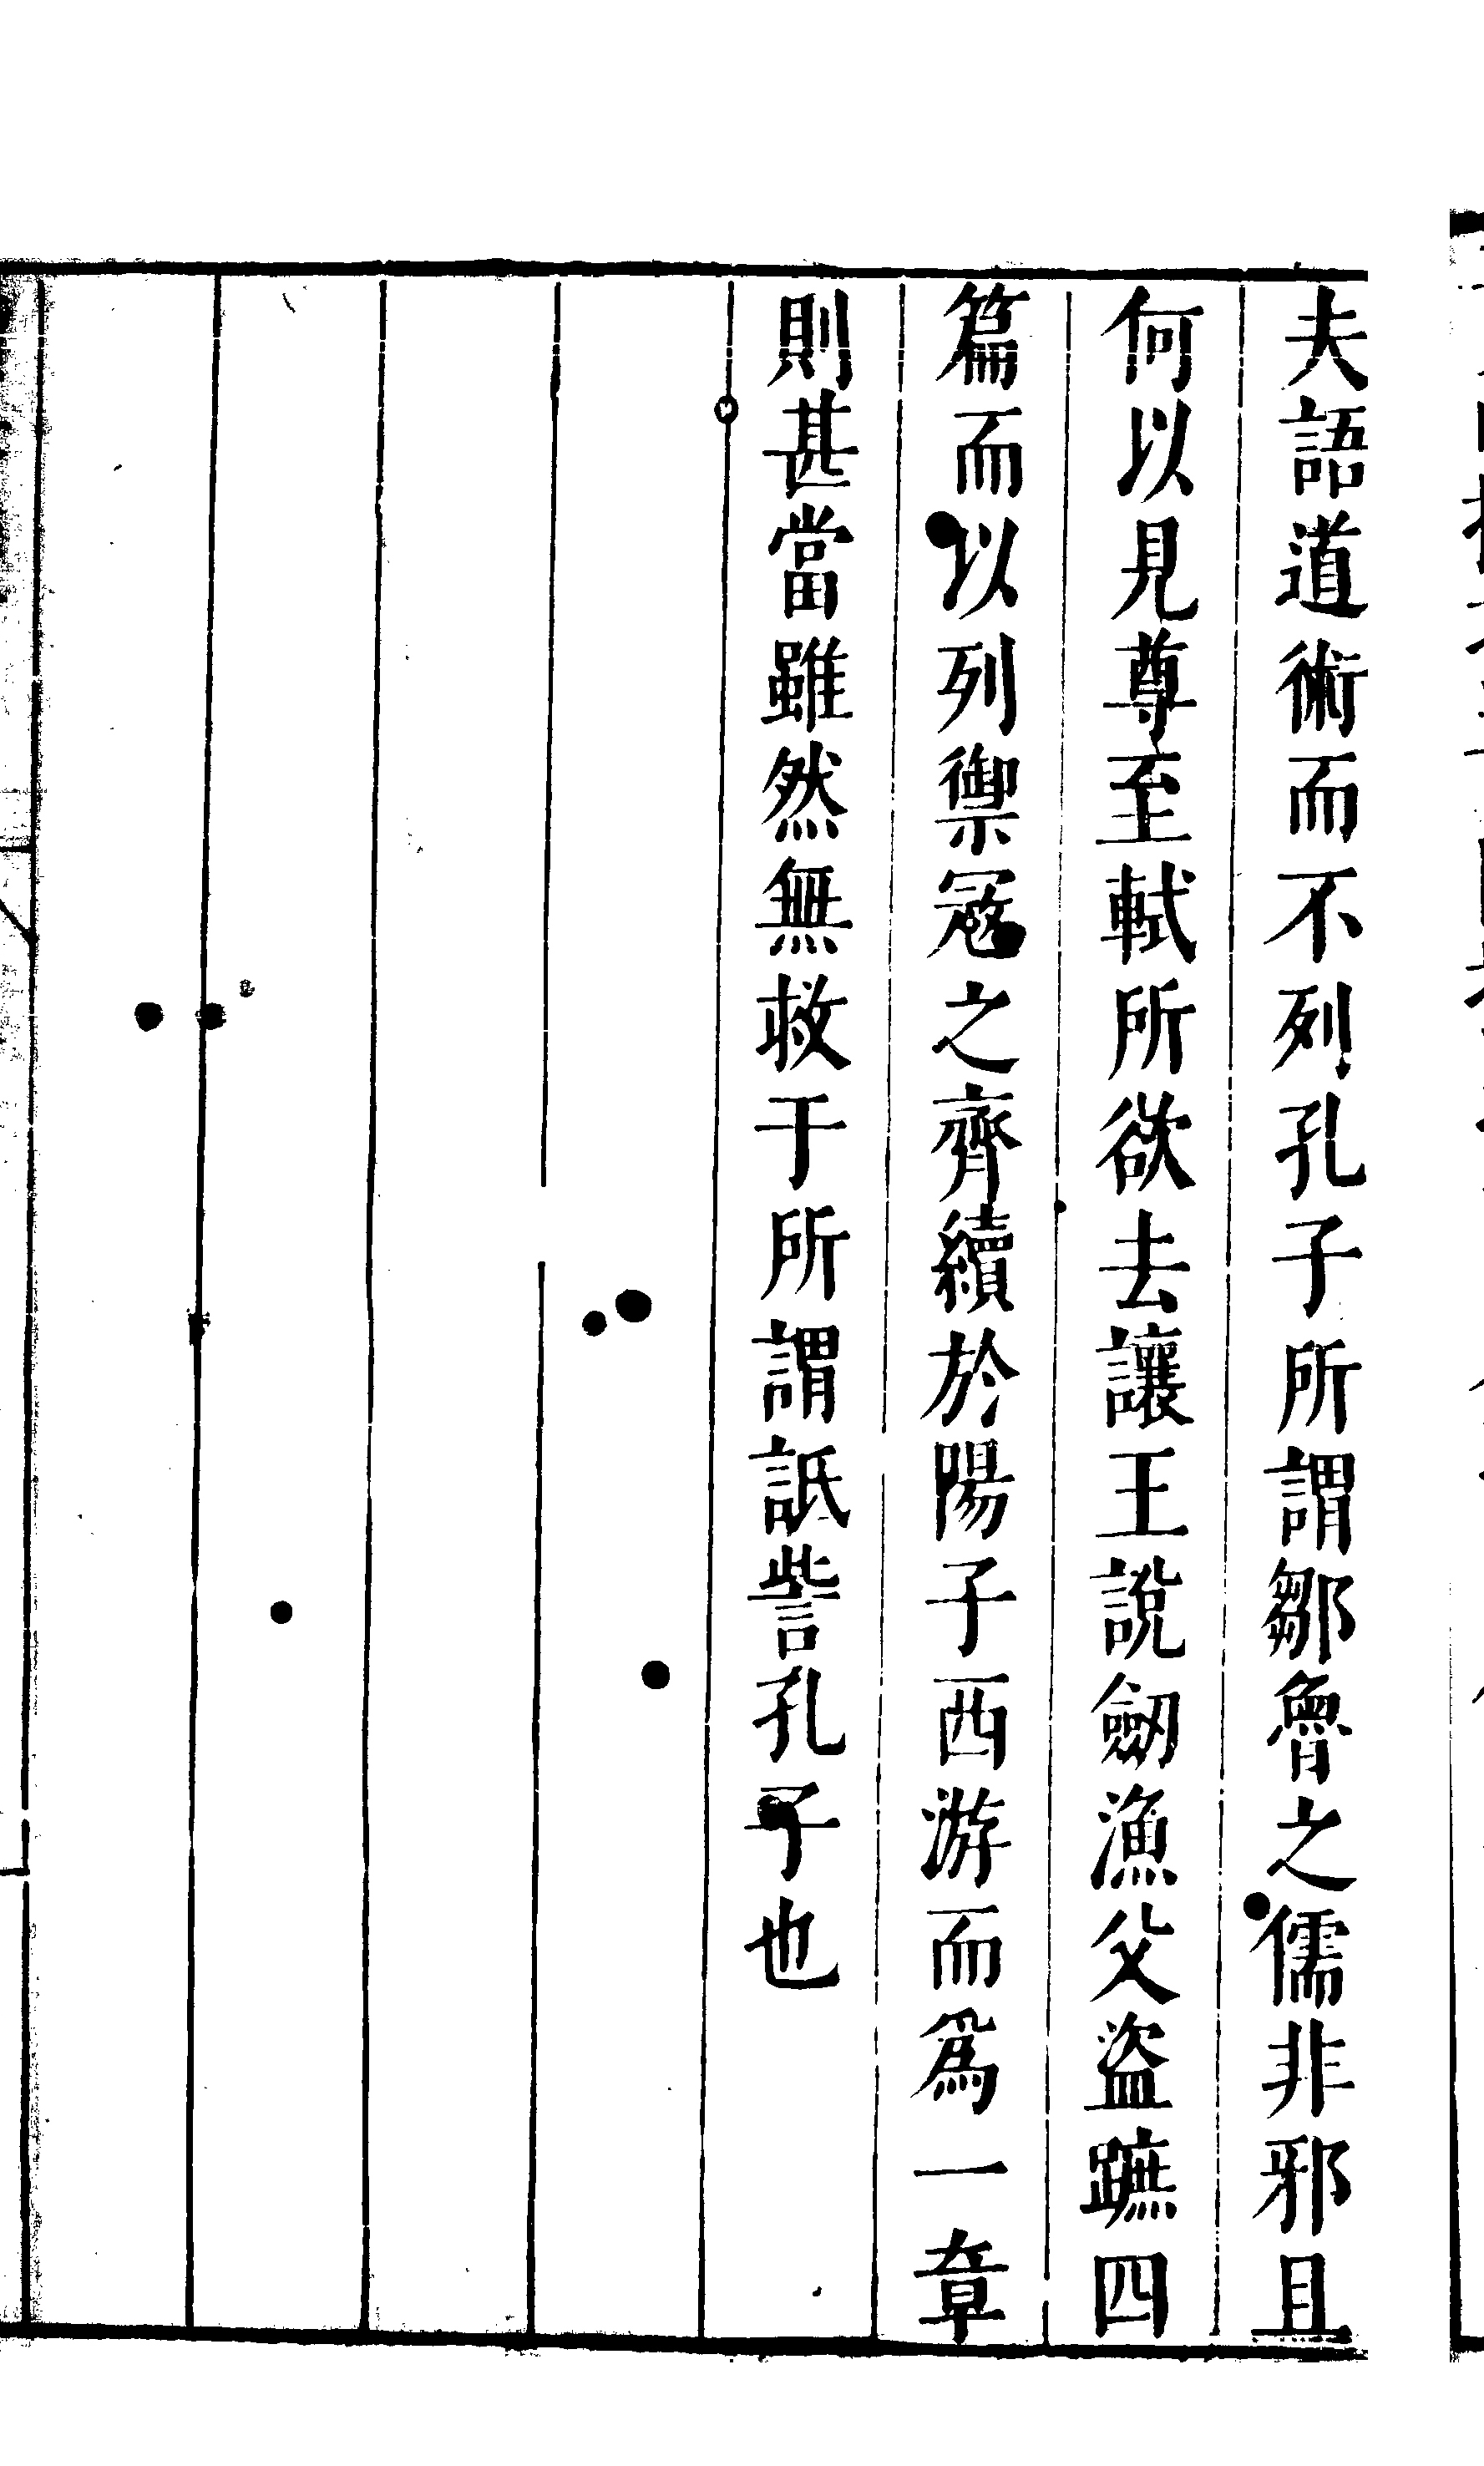 夫語道術而不列孔子所謂鄒魯之儒非邪且
何以見尊至軾所欲去讓王說劒漁父盜蹠四
篇而以列禦寇之齊續於陽子西游而爲一章
則甚當雖然無救于所謂詆訾孔子也